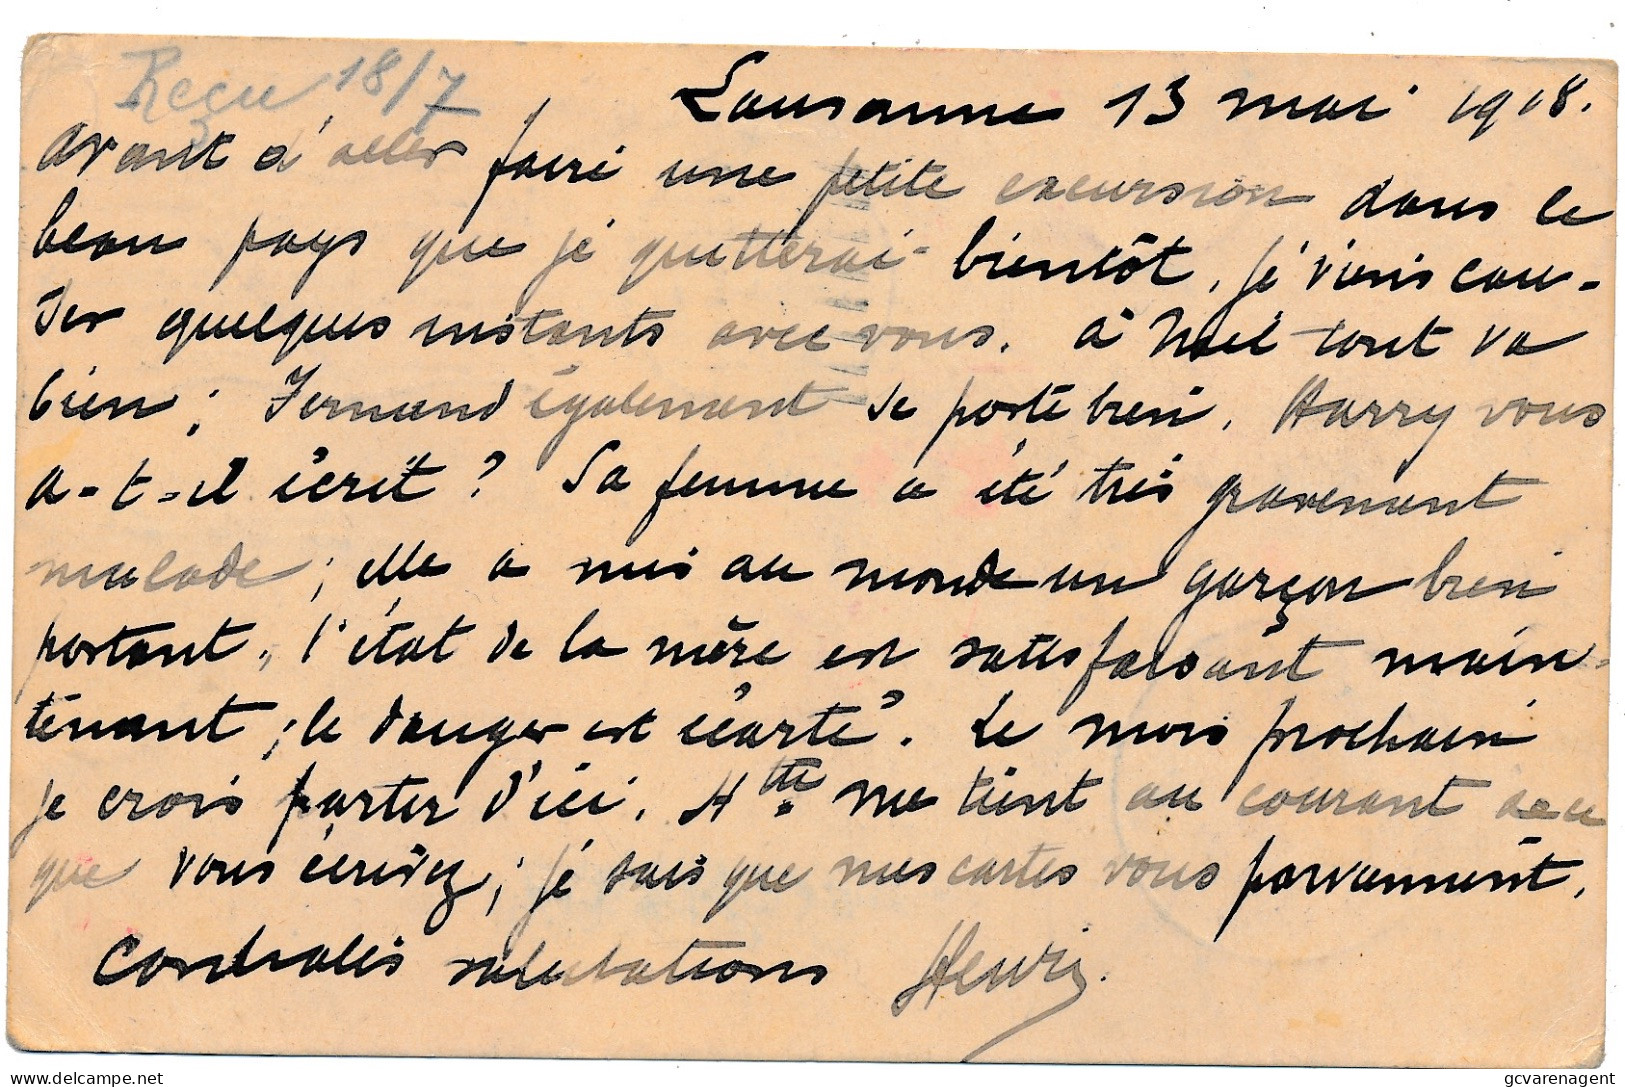 Reçu 18/7
Lausanne 13 mai 1918.
avant d'aller faire une petite excursion dans le
beau pays que je quitterai bientôt, je viens cau-
ser quelques instants avec vous. à tout va
bien; Fernand également se porte bien. Harry vous
a-t-il écrit? Sa femme a été très gravement
malade; elle a mis au monde un garçon bien
portant, l'état de la mère est satisfaisant main-
tenant; le danger est écarté. Le mois prochain
je crois partir d'ici. Htte me tient au courant de ce
que vous écrivez; je sais que mes cartes vous parviennent.
Cordiales salutations Henri.
© delcampe.net
gcvarenagent